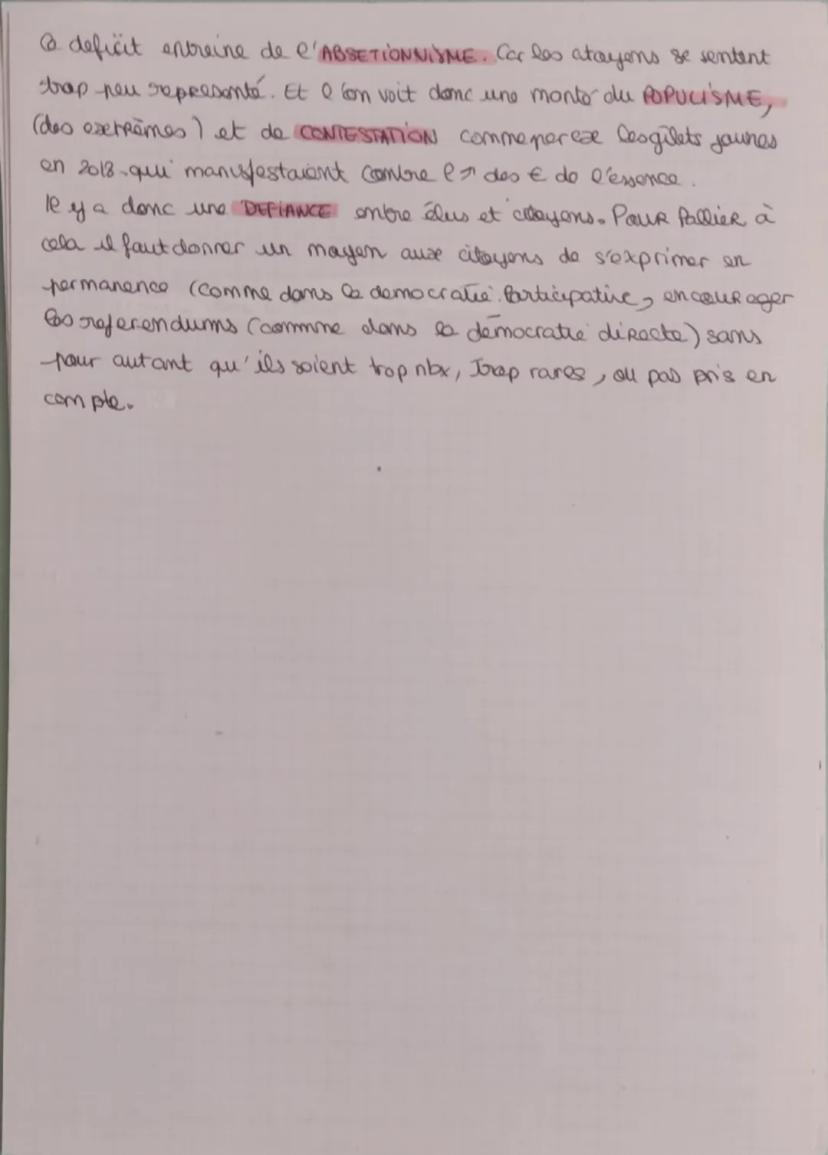 Ce deficit entreine de l'ABSETIONNISME. Car les citoyens se sentent
trop peu representé. Et l'on voit donc une monté du POPULISME,
(des extrêmes) et de CONTESTATION comme par ex les gilets jaunes
en 2018. qui manifestaient contre l'↗ des € de l'essence.
Il y a donc une DEFIANCE entre élus et citoyens. Pour Pallier à
cela il faut donner un moyen aux citoyens de s'exprimer en
permanence (comme dans la democratie Participative, encourager
les referendums (comme dans la démocratie directe) sans
pour autant qu'ils soient trop nbx, trop rares, ou pas pris en
compte.